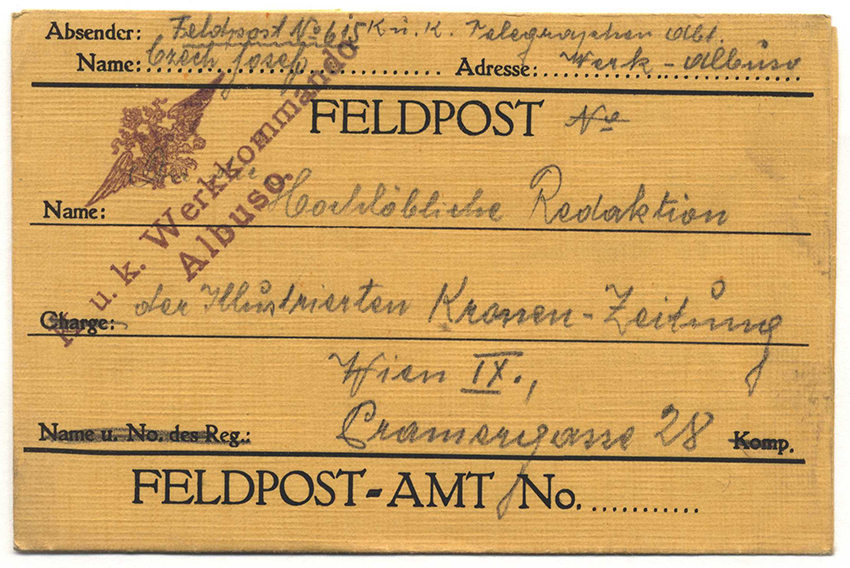 Absender: Feldpost No 615 K. u. K. Telegraphen Abt.
Name: Czech Josef Adresse: Werk - Albuso
FELDPOST No
K. u. k. Werkkommando
Albuso.
Name: Hochlöbliche Redaktion
Charge: der Illustrierten Kronen-Zeitung
Wien IX.,
Name u. No. des Reg.: Pramergasse 28 Komp.
FELDPOST-AMT No.